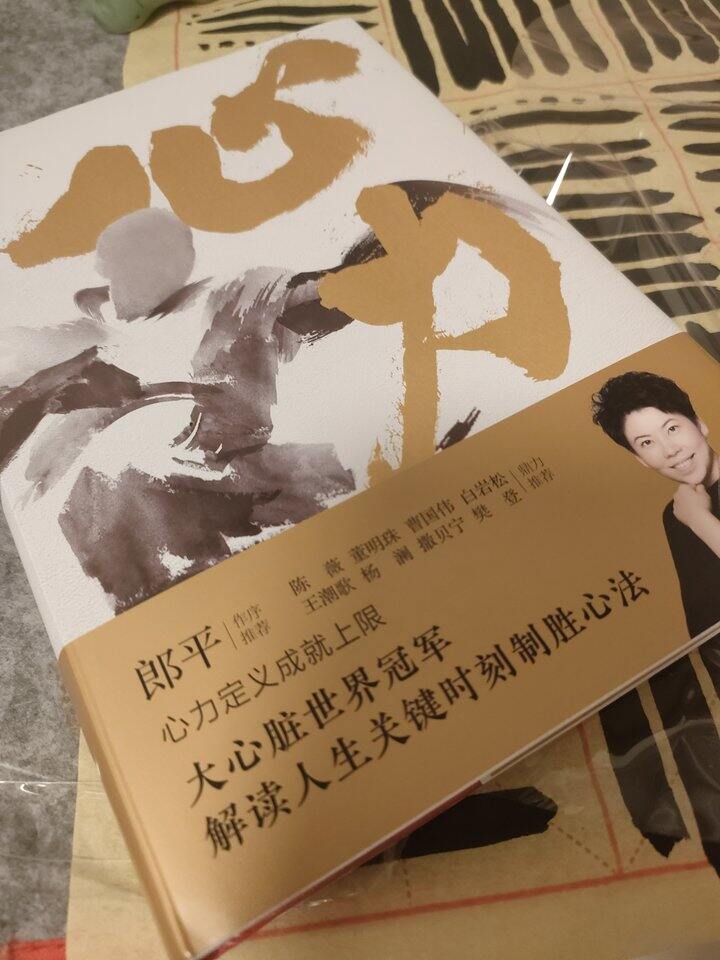 心力
郎平 作序推荐
陈薇 董明珠 曹国伟 白岩松
王潮歌 杨澜 撒贝宁 樊登
鼎力推荐
心力定义成就上限
大心脏世界冠军
解读人生关键时刻制胜心法